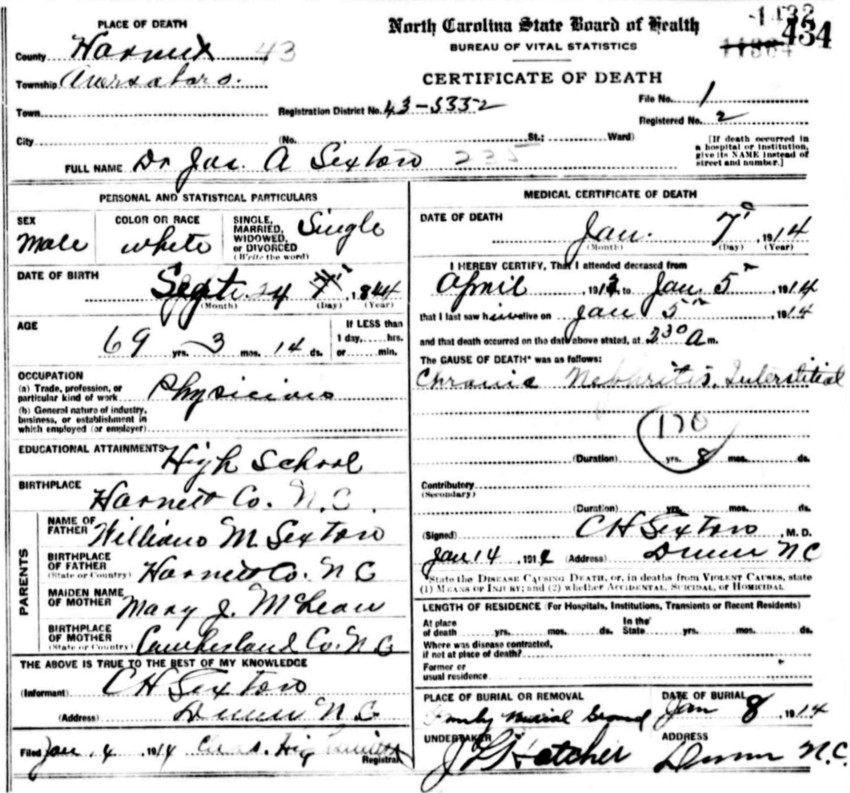 PLACE OF DEATH
County Harnett 43
Township Averasboro.
Town
City
North Carolina State Board of Health
BUREAU OF VITAL STATISTICS
CERTIFICATE OF DEATH
434
Registration District No. 43-5352
File No. 1
Registered No. 2
(No. St.; Ward)
[If death occurred in a hospital or institution, give its NAME instead of street and number.]
FULL NAME Dr Jas. A Sexton 235
PERSONAL AND STATISTICAL PARTICULARS
SEX
Male
COLOR OR RACE
white
SINGLE, MARRIED, WIDOWED, or DIVORCED
(Write the word)
Single
DATE OF BIRTH
Sept. 24, 1844
(Month) (Day) (Year)
AGE
69 yrs. 3 mos. 14 ds.
If LESS than
1 day, hrs.
or min.
OCCUPATION
(a) Trade, profession, or
particular kind of work Physician
(b) General nature of industry,
business, or establishment in
which employed (or employer)
EDUCATIONAL ATTAINMENTS
High School
BIRTHPLACE
Harnett Co. N.C.
PARENTS
NAME OF
FATHER William M. Sexton
BIRTHPLACE
OF FATHER
(State or Country) Harnett Co. N C
MAIDEN NAME
OF MOTHER Mary J. McLean
BIRTHPLACE
OF MOTHER
(State or Country) Cumberland Co. N C
THE ABOVE IS TRUE TO THE BEST OF MY KNOWLEDGE
(Informant) C H Sexton
(Address) Dunn N C
Filed Jan. 4, 1914
Registrar
MEDICAL CERTIFICATE OF DEATH
DATE OF DEATH
Jan. 7, 1914
(Month) (Day) (Year)
I HEREBY CERTIFY, That I attended deceased from
April 191 to Jan 5 1914
that I last saw him alive on Jan 5 1914
and that death occurred on the date above stated, at 2 30 A m.
The CAUSE OF DEATH* was as follows:
Chronic Nephritis, Interstitial
(Duration) yrs. 8 mos. ds.
Contributory
(Secondary)
(Duration) yrs. mos. ds.
(Signed) C H Sexton M.D.
Jan 14, 191 (Address) Dunn N C
*State the DISEASE CAUSING DEATH, or, in deaths from VIOLENT CAUSES, state
(1) MEANS OF INJURY; and (2) whether ACCIDENTAL, SUICIDAL, or HOMICIDAL
LENGTH OF RESIDENCE (For Hospitals, Institutions, Transients or Recent Residents)
At place
of death yrs. mos. ds.
In the
State yrs. mos. ds.
Where was disease contracted,
if not at place of death?
Former or
usual residence
PLACE OF BURIAL OR REMOVAL
Family Burial Ground
DATE OF BURIAL
Jan 8, 1914
UNDERTAKER
J L Hatcher
ADDRESS
Dunn N.C.